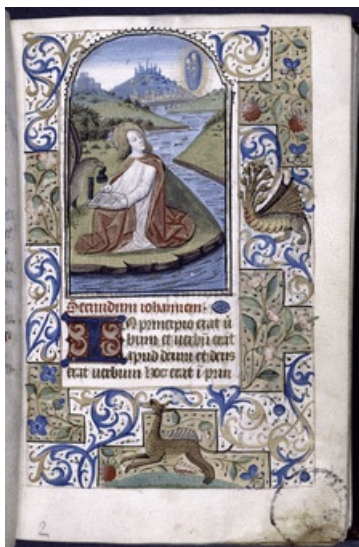 Secundum iohannem
IN principio erat u
bum et uerbũ erat
apud deum et deus
erat uerbum hoc erat i prin
2